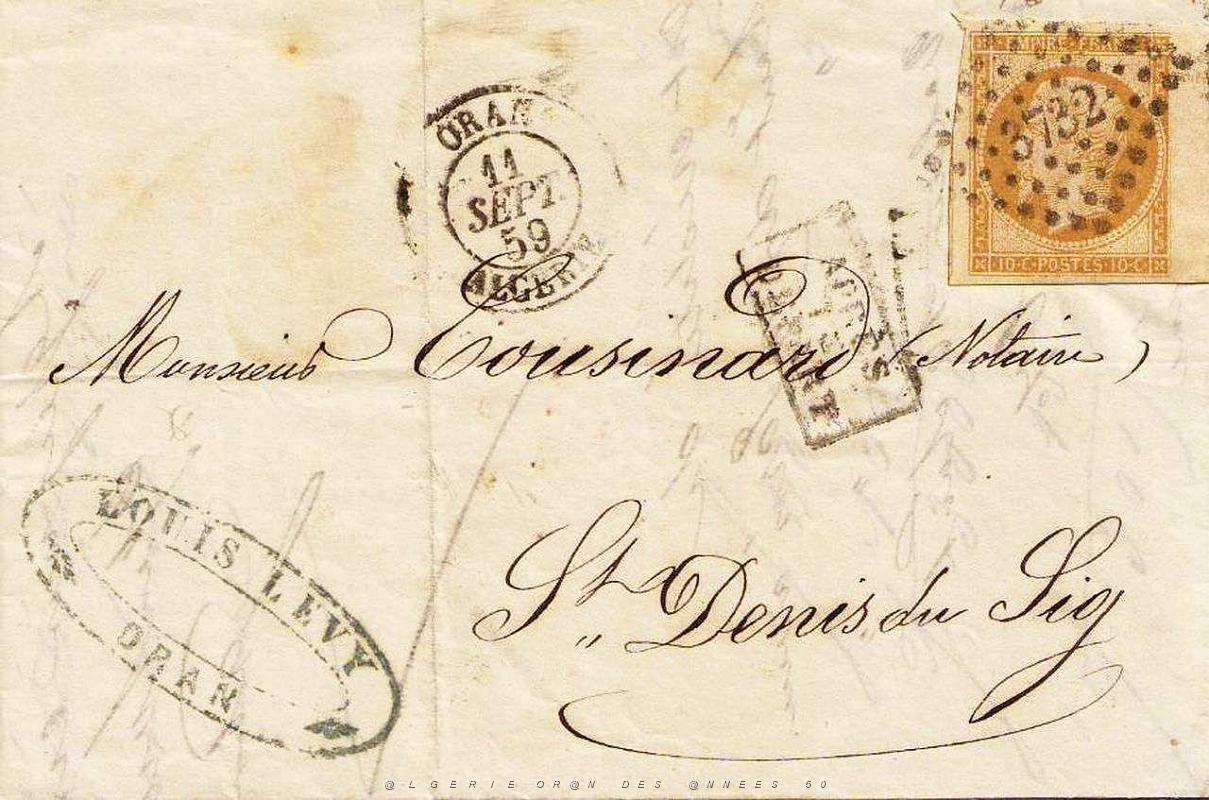 EMPIRE FRANC
3732
10·C·POSTES·10·C
ORAN
11
SEPT.
59
ALGERIE
Monsieur Cousinard (Notaire)
St Denis du Sig
LOUIS LEVY
ORAN
@-LGERIE OR@N DES @NNEES 50